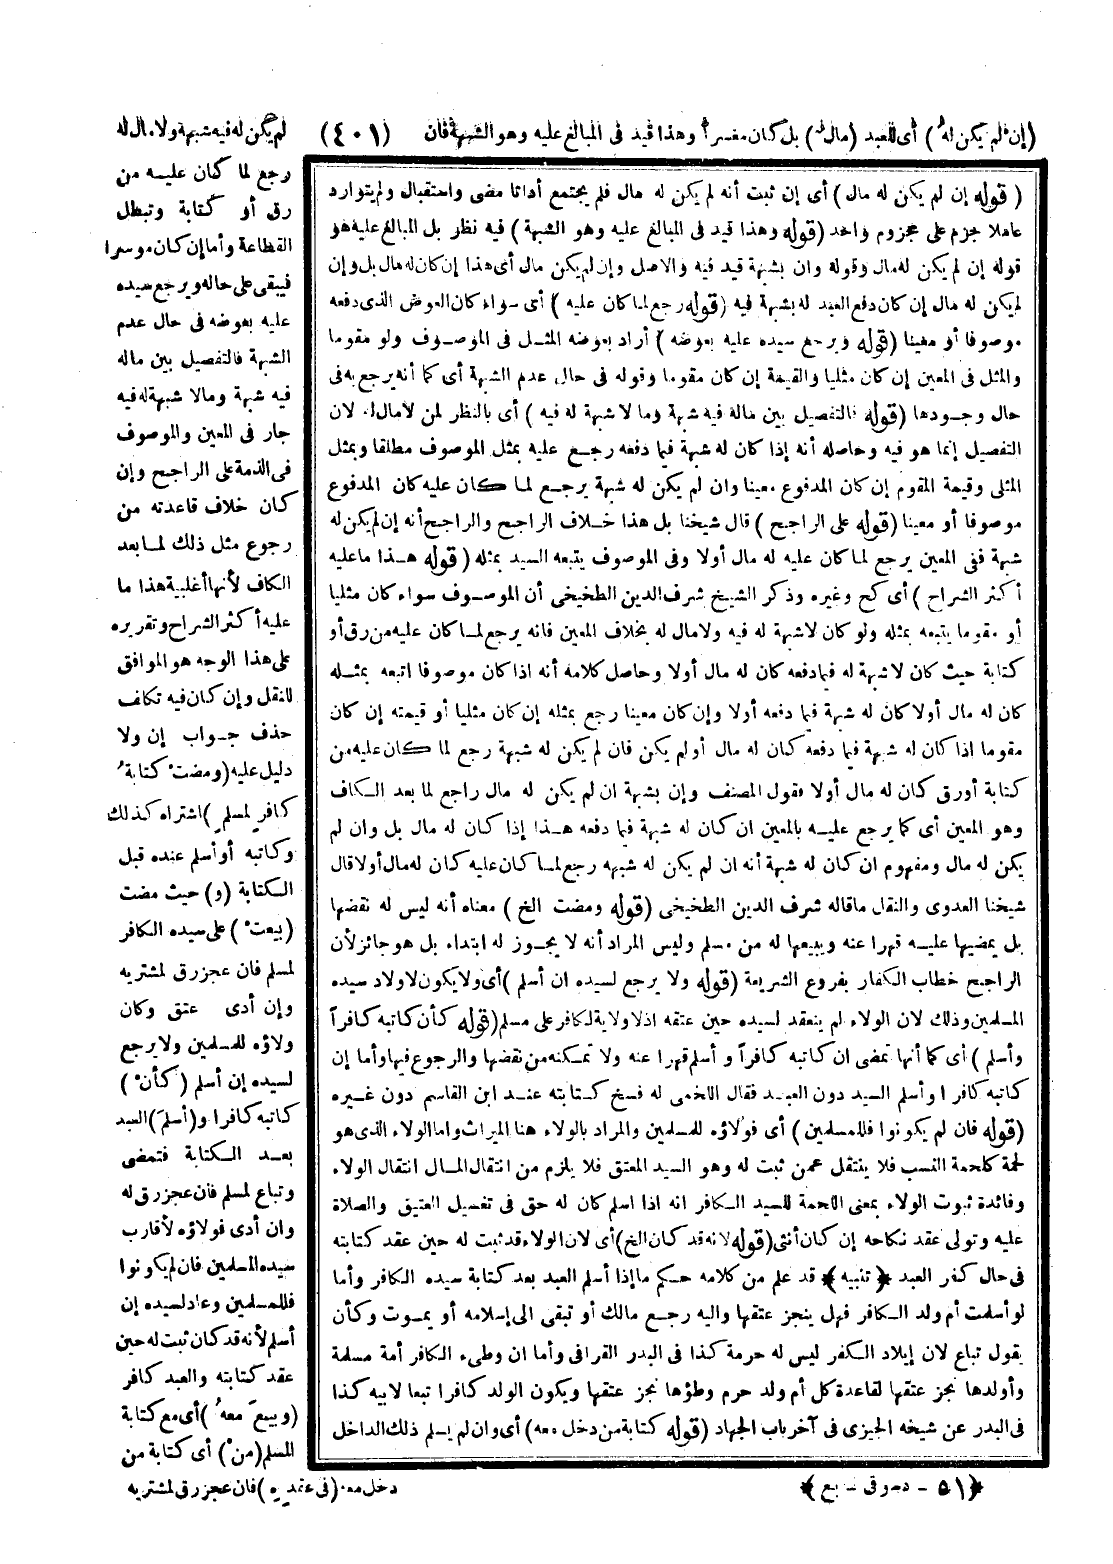 (إن لم يكن له) أى للعبد (مال) بل كان معسرا وهذا قيد فى المبالغ عليه وهو الشبهة فان (٤٠١) لم يكن له فيه شبهة ولا مال له
رجع لما كان عليه من
رق أو كتابة وتبطل
القطاعة وأما إن كان موسرا
فيبقى على حاله ويرجع سيده
عليه بعوضه فى حال عدم
الشبهة فالتفصيل بين ماله
فيه شبهة ومالا شبهة له فيه
جار فى المعين والموصوف
فى الذمة على الراجح وإن
كان خلاف قاعدته من
رجوع مثل ذلك لما بعد
الكاف لأنها أغلبية هذا ما
عليه أكثر الشراح وتقريره
على هذا الوجه هو الموافق
للنقل وإن كان فيه تكلف
حذف جواب إن ولا
دليل عليه (ومضت كتابة
كافر لمسلم) اشتراه كذلك
وكاتبه أو أسلم عنده قبل
الكتابة (و) حيث مضت
(بيعت) على سيده الكافر
لمسلم فان عجز رق لمشتريه
وإن أدى عتق وكان
ولاؤه للمسلمين ولا يرجع
لسيده إن أسلم (كأن)
كاتبه كافرا و(أسلم) العبد
بعد الكتابة فتمضى
وتباع لمسلم فان عجز رق له
وان أدى فولاؤه لأقارب
سيده المسلمين فان لم يكونوا
فللمسلمين وعاد لسيده إن
أسلم لأنه قد كان ثبت له حين
عقد كتابته والعبد كافر
(وبيع معه) أى مع كتابة
المسلم (من) أى كتابة من
دخل معه (فى عقده) فان عجز رق لمشتريه
(قوله إن لم يكن له مال) أى إن ثبت أنه لم يكن له مال فلم يجتمع أداتا مضى واستقبال ولم يتوارد
عاملا جزم على مجزوم واحد (قوله وهذا قيد فى المبالغ عليه وهو الشبهة) فيه نظر بل المبالغ عليه هو
قوله إن لم يكن له مال وقوله وان بشبهة قيد فيه والاصل وإن لم يكن مال أى هذا إن كان له مال بل وإن
لم يكن له مال إن كان دفع العبد له بشبهة فيه (قوله رجع لما كان عليه) أى سواء كان العوض الذى دفعه
موصوفا أو معينا (قوله ويرجع سيده عليه بعوضه) أراد بعوضه المثل فى الموصوف ولو مقوما
والمثل فى المعين إن كان مثليا والقيمة إن كان مقوما وقوله فى حال عدم الشبهة أى كما أنه يرجع به فى
حال وجودها (قوله فالتفصيل بين ماله فيه شبهة وما لا شبهة له فيه) أى بالنظر لمن لا مال له لان
التفصيل إنما هو فيه وحاصله أنه إذا كان له شبهة فيما دفعه رجع عليه بمثل الموصوف مطلقا وبمثل
المثلى وقيمة المقوم إن كان المدفوع معينا وان لم يكن له شبهة يرجع لما كان عليه كان المدفوع
موصوفا أو معينا (قوله على الراجح) قال شيخنا بل هذا خلاف الراجح والراجح أنه إن لم يكن له
شبهة ففى المعين يرجع لما كان عليه له مال أولا وفى الموصوف يتبعه السيد بمثله (قوله هذا ما عليه
أكثر الشراح) أى كح وغيره وذكر الشيخ شرف الدين الطخيخى أن الموصوف سواء كان مثليا
أو مقوما يتبعه بمثله ولو كان لا شبهة له فيه ولا مال له بخلاف المعين فانه يرجع لما كان عليه من رق أو
كتابة حيث كان لا شبهة له فيما دفعه كان له مال أولا وحاصل كلامه أنه اذا كان موصوفا اتبعه بمثله
كان له مال أولا كان له شبهة فيما دفعه أولا وإن كان معينا رجع بمثله إن كان مثليا أو قيمته إن كان
مقوما اذا كان له شبهة فيما دفعه كان له مال أو لم يكن فان لم يكن له شبهة رجع لما كان عليه من
كتابة أو رق كان له مال أولا فقول المصنف وإن بشبهة ان لم يكن له مال راجع لما بعد الكاف
وهو المعين أى كما يرجع عليه بالمعين ان كان له شبهة فيما دفعه هذا إذا كان له مال بل وان لم
يكن له مال ومفهوم ان كان له شبهة أنه ان لم يكن له شبهه رجع لما كان عليه كان له مال أولا قال
شيخنا العدوى والنقل ما قاله شرف الدين الطخيخى (قوله ومضت الخ) معناه أنه ليس له نقضها
بل يمضيها عليه قهرا عنه ويبيعها له من مسلم وليس المراد أنه لا يجوز له ابتداء بل هو جائز لأن
الراجح خطاب الكفار بفروع الشريعة (قوله ولا يرجع لسيده ان أسلم) أى ولا يكون لاولاد سيده
المسلمين وذلك لان الولاء لم ينعقد لسيده حين عتقه اذ لا ولاية لكافر على مسلم (قوله كأن كاتبه كافراً
وأسلم) أى كما أنها تمضى ان كاتبه كافراً و أسلم قهرا عنه ولا تمكنه من نقضها والرجوع فيها وأما إن
كاتبه كافرا وأسلم السيد دون العبد فقال اللخمى له فسخ كتابته عند ابن القاسم دون غيره
(قوله فان لم يكونوا فللمسلمين) أى فولاؤه للمسلمين والمراد بالولاء هنا الميراث واما الولاء الذى هو
لحمة كلحمة النسب فلا ينتقل عمن ثبت له وهو السيد المعتق فلا يلزم من انتقال المال انتقال الولاء
وفائدة ثبوت الولاء بمعنى اللحمة للسيد الكافر انه اذا اسلم كان له حق فى تغسيل العتيق والصلاة
عليه وتولى عقد نكاحه إن كان أنثى (قوله لانه قد كان الخ) أى لان الولاء قد ثبت له حين عقد كتابته
فى حال كفر العبد ﴿تنبيه﴾ قد علم من كلامه حكم ما إذا أسلم العبد بعد كتابة سيده الكافر وأما
لو أسلمت أم ولد الكافر فهل ينجز عتقها واليه رجع مالك أو تبقى الى إسلامه أو يموت وكأن
يقول تباع لان إيلاد الكفر ليس له حرمة كذا فى البدر القرافى وأما ان وطىء الكافر أمة مسلمة
وأولدها نجز عتقها لقاعدة كل أم ولد حرم وطؤها نجز عتقها ويكون الولد كافرا تبعا لابيه كذا
فى البدر عن شيخه الجيزى فى آخر باب الجهاد (قوله كتابة من دخل معه) أى وان لم يسلم ذلك الداخل
﴿٥١ - دسوقى - بع﴾